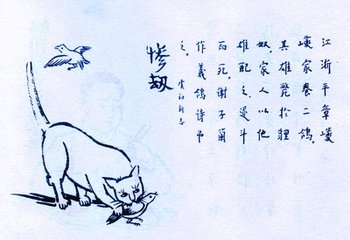 慘劫
江浙平章巙
巙家養二鴿，
其雄斃於狸
奴家人以他
雄配之遂斗
而死。謝子蘭
作義鴿詩弔
之。